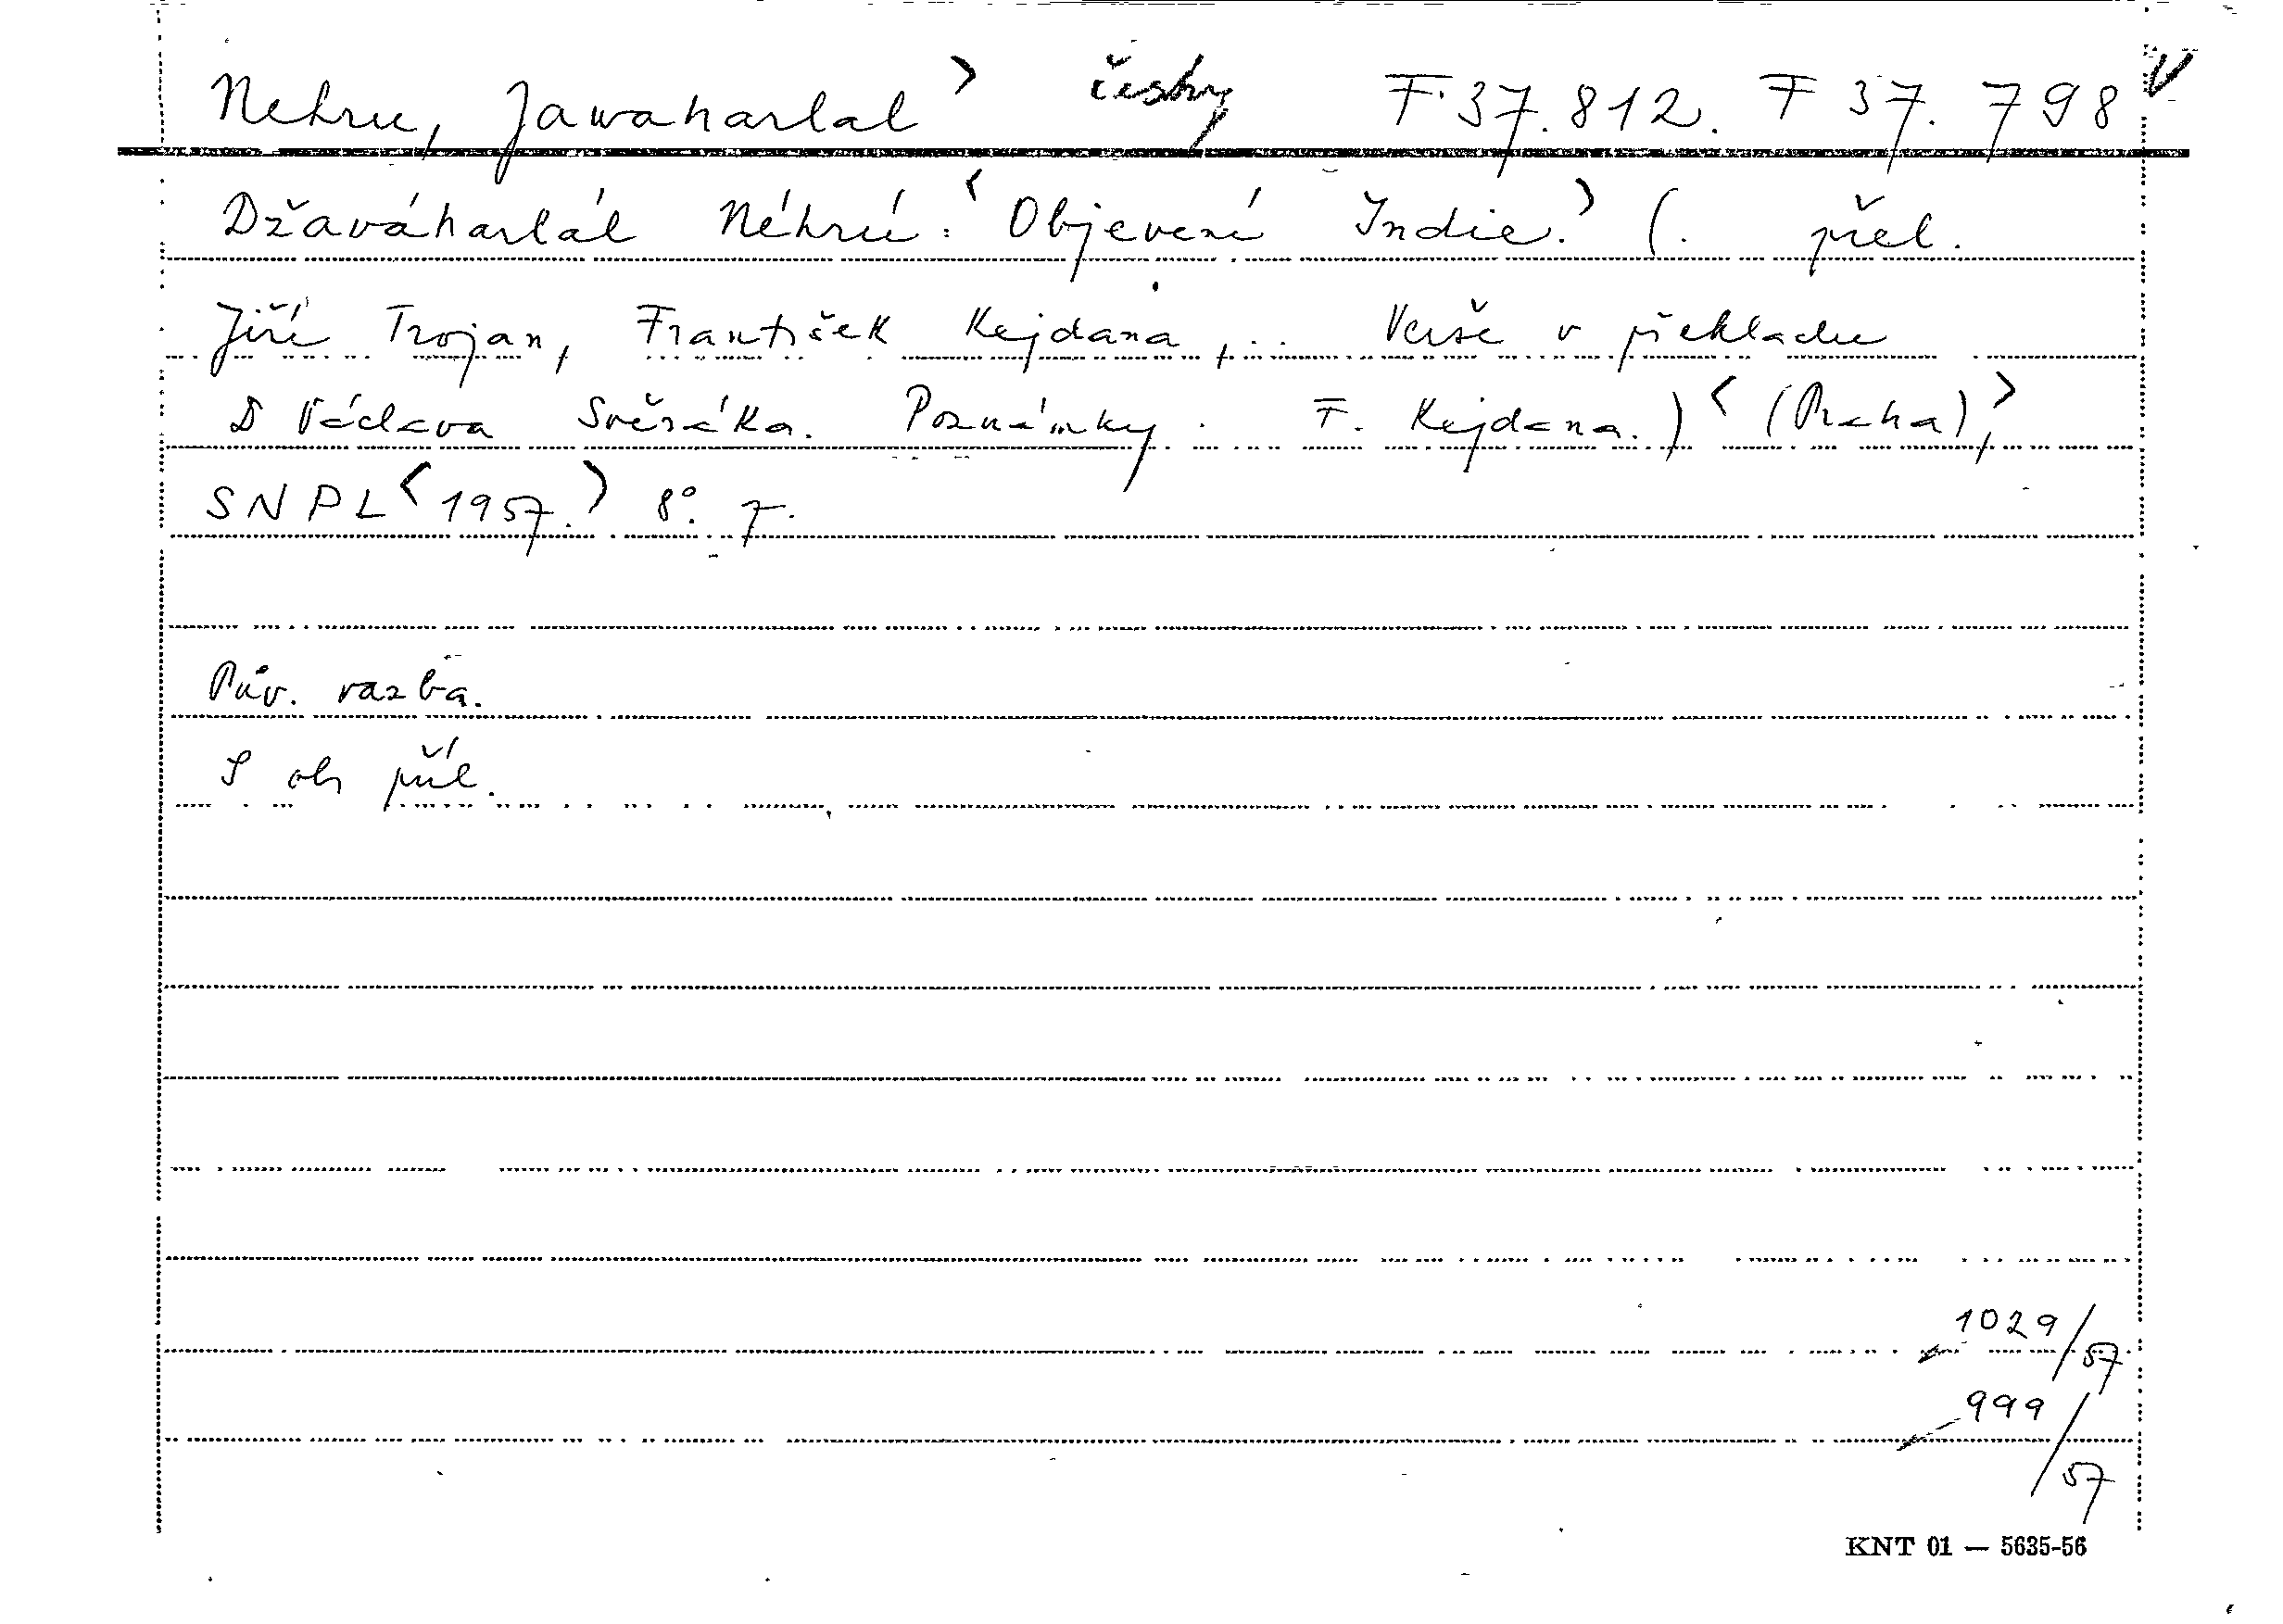 Nehru, Jawaharlal> česky F 37.812. F 37.798 V
Džaváharlál Néhrú: <Objevení Indie.> (. přel.
Jiří Trojan, František Kejdana, .. Verše v překladu
D Václava Svěráka. Poznámky . F. Kejdana.) <(Praha),>
SNPL <1957.> 8°. 7.
Pův. vazba.
S ob příl.
1029/57
999/57
KNT 01 — 5635-56